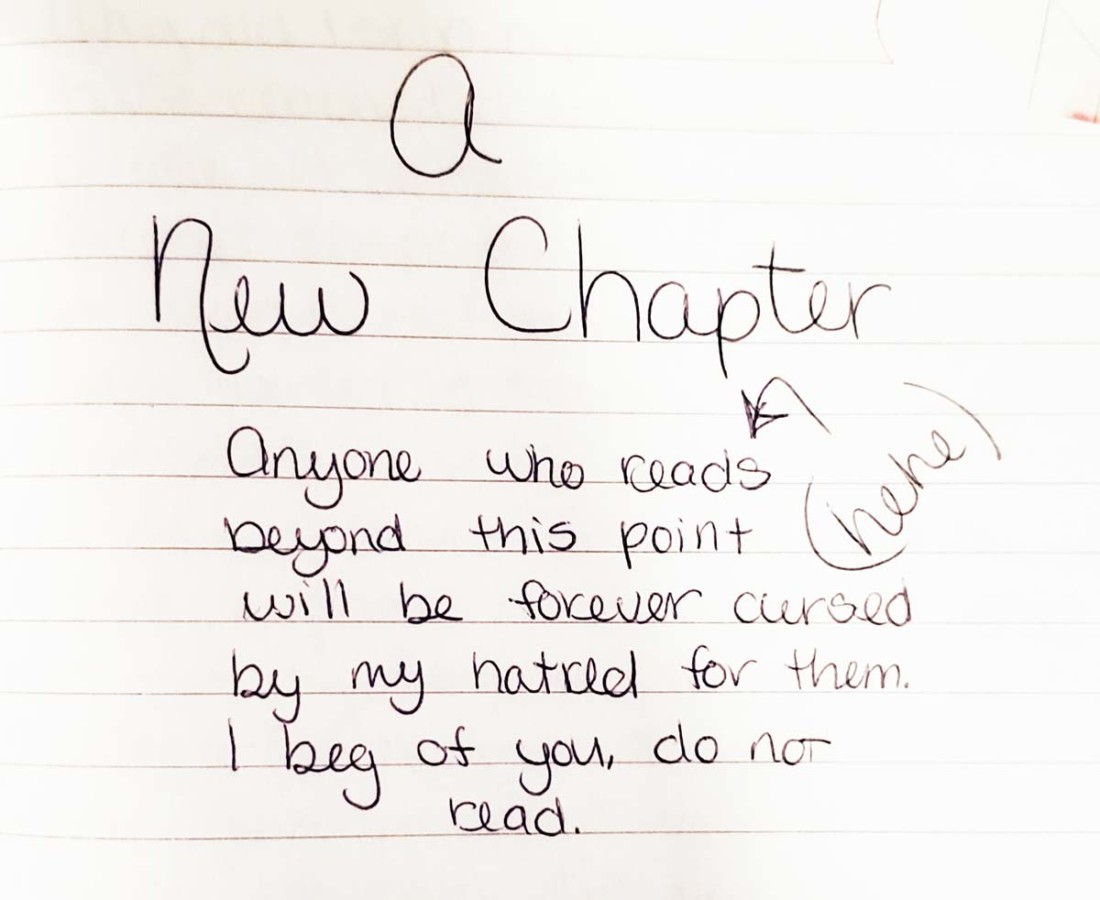 A
New Chapter
Anyone who reads
beyond this point
(hehe)
will be forever cursed
by my hatred for them.
I beg of you, do not
read.